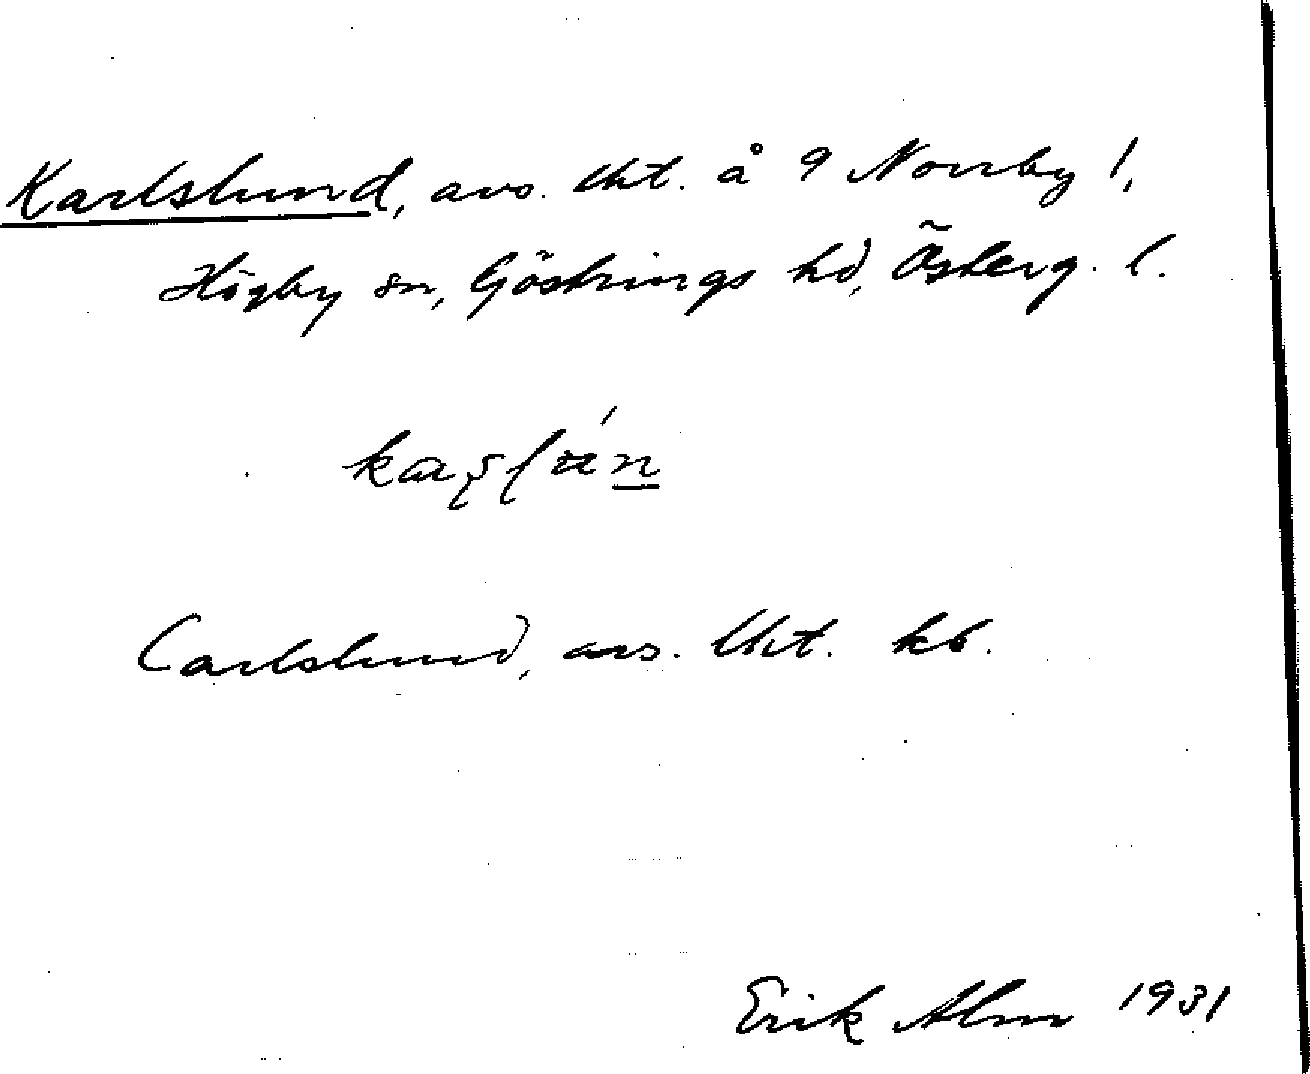 Karlslund, avs. lht. å 9 Norrby 1,
Högby sn, Göstrings hd, Österg. l.
Carlslund, avs. lht. kb.
Erik Alm 1931